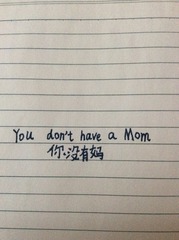 You don't have a Mom
你没有妈